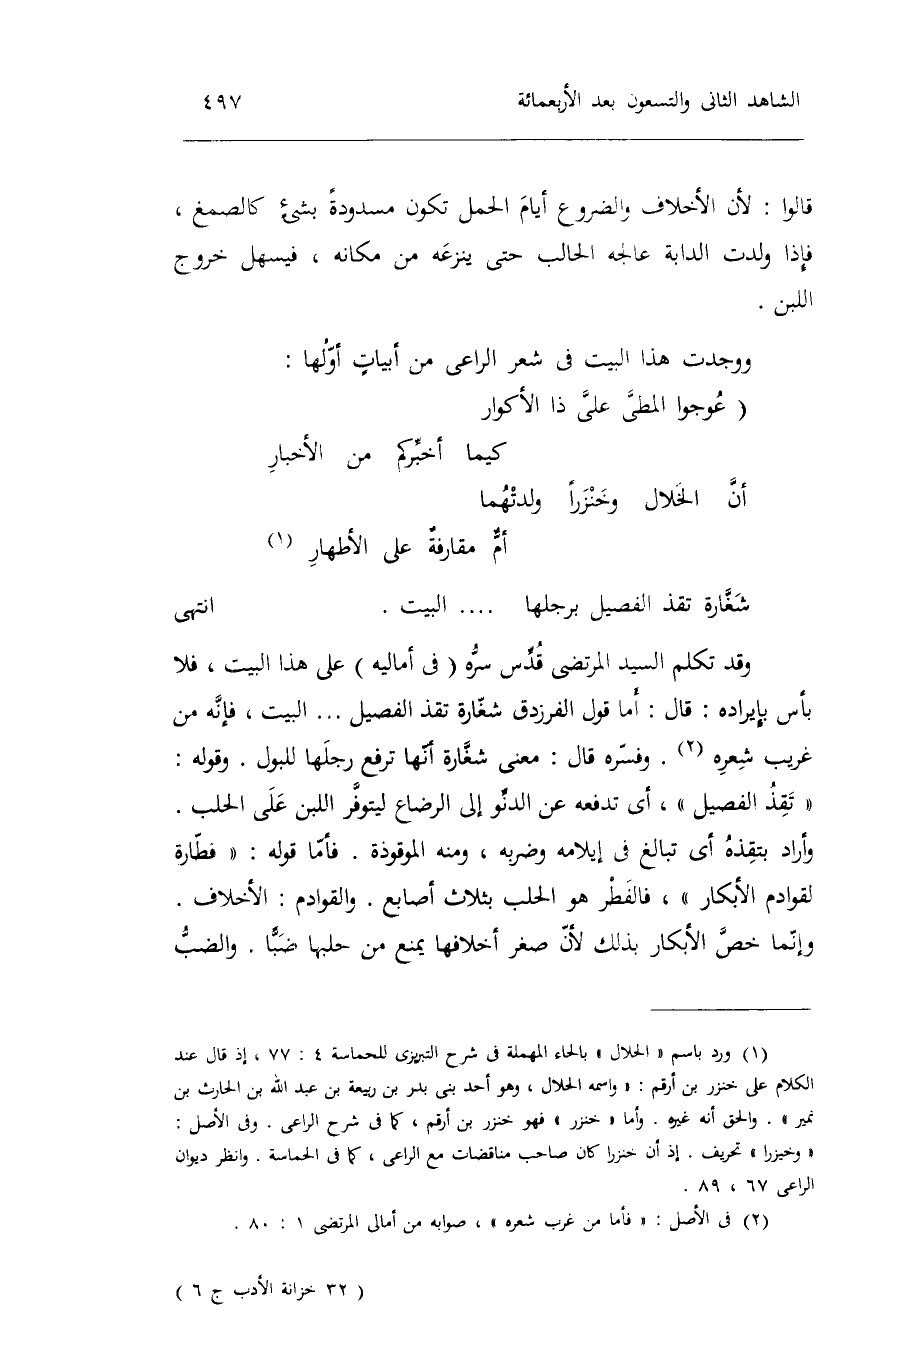 الشاهد الثانى والتسعون بعد الأربعمائة ٤٩٧
قالوا : لأن الأخلاف والضروع أيامَ الحمل تكون مسدودةً بشئ كالصمغ ،
فإذا ولدت الدابة عالجه الحالب حتى ينزعَه من مكانه ، فيسهل خروج
اللبن .
ووجدت هذا البيت فى شعر الراعى من أبياتٍ أوّلُها :
( عُوجوا المطىَّ علىَّ ذا الأكوار
كيما أخبِّركم من الأخبارِ
أنَّ الخَلال وخَنْزَراً ولدتْهُما
أمٌّ مقارفةٌ على الأطهارِ (١)
شَغَّارة تقذ الفصيل برجلها .... البيت . انتهى
وقد تكلم السيد المرتضى قُدِّس سرُّه ( فى أماليه ) على هذا البيت ، فلا
بأس بإيراده : قال : أما قول الفرزدق شغّارة تقذ الفصيل ... البيت ، فإنَّه من
غريب شِعرِه (٢) . وفسّره قال : معنى شغَّارة أنّها ترفع رجلَها للبول . وقوله :
« تَقِذُ الفصيل » ، أى تدفعه عن الدنُو إلى الرضاع ليتوفَّر اللبن عَلَى الحلب .
وأراد بتقِذهُ أى تبالغ فى إيلامه وضربه ، ومنه الموقوذة . فأمّا قوله : « فطّارة
لقوادم الأبكار » ، فالفَطْر هو الحلب بثلاث أصابع . والقوادم : الأخلاف .
وإنّما خصَّ الأبكار بذلك لأنّ صغر أخلافها يمنع من حلبها ضَبًّا . والضبُّ
(١) ورد باسم « الحلال » بالحاء المهملة فى شرح التبريزى للحماسة ٤ : ٧٧ ، إذ قال عند
الكلام على خنزر بن أرقم : « واسمه الحلال ، وهو أحد بنى بدر بن ربيعة بن عبد الله بن الحارث بن
نمير » . والحق أنه غيره . وأما « خنزر » فهو خنزر بن أرقم ، كما فى شرح الراعى . وفى الأصل :
« وخيزرا » تحريف . إذ أن خنزرا كان صاحب مناقضات مع الراعى ، كما فى الحماسة . وانظر ديوان
الراعى ٦٧ ، ٨٩ .
(٢) فى الأصل : « فأما من غرب شعره » ، صوابه من أمالى المرتضى ١ : ٨٠ .
( ٣٢ خزانة الأدب ج ٦ )